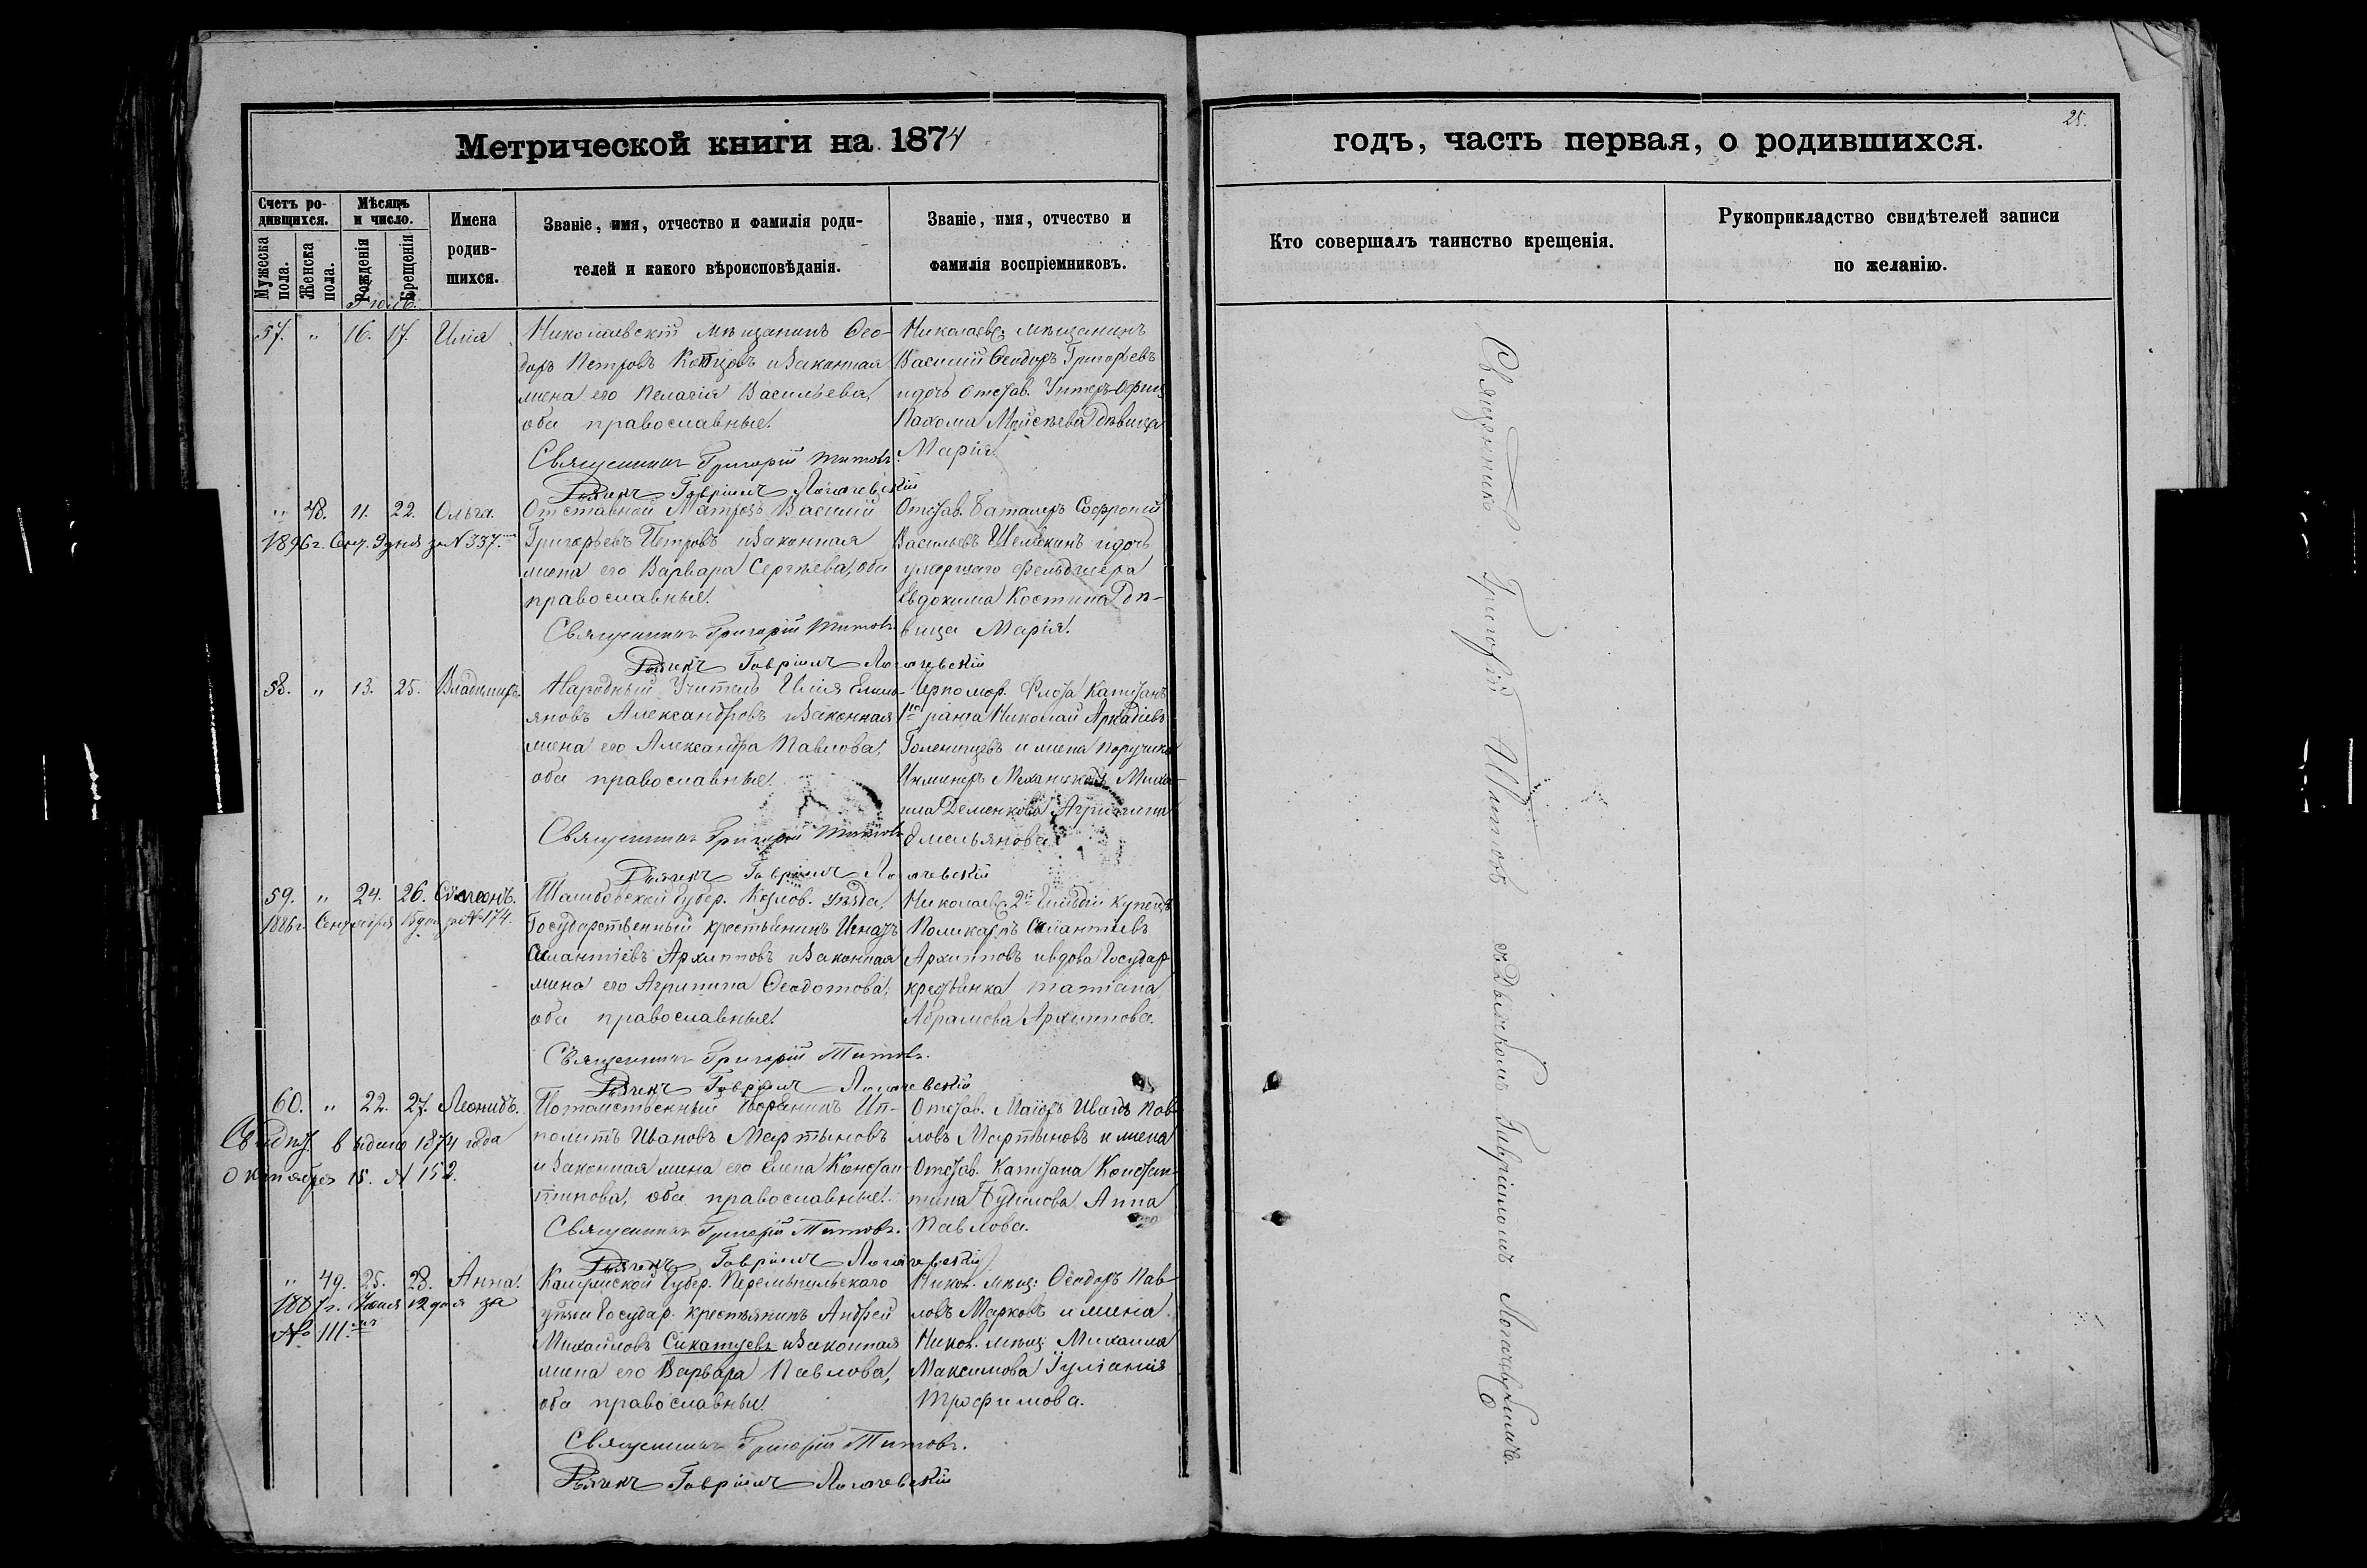 Метрической книги на 1874
Счетъ ро-
дившихся.
Мѣсяцъ
и число.
Мужеска
пола.
Женска
пола.
Рожденія
Крещенія
Имена
родив-
шихся.
Званіе, имя, отчество и фамилія роди-
телей и какого вѣроисповѣданія.
Званіе, имя, отчество и
фамилія воспріемниковъ.
57. " 16. 17. Илія
Николаевскій мѣщанинъ Ѳео-
доръ Петровъ и законная
жена его Пелагія Васильева,
оба православные.
Священникъ Григорій Титовъ.
Дьячекъ Гавріилъ Логачевскій
Николаевс. мѣщанинъ
Василій Ѳеодоръ Григорьевъ
и дочь отстав. Унтеръ-Офиц.
Пахома Моисѣева дѣвица
Марія.
" 48. 11. 22. Ольга.
1896 г. за № 337.
Отставной Матрозъ Василій
Григорьевъ Петровъ и законная
жена его Варвара Сергѣева, оба
православные.
Священникъ Григорій Титовъ.
Дьячекъ Гавріилъ Логачевскій
Отстав. Баталеръ Софроній
Васильевъ Шелеканъ и дочь
умершаго Фельдшера
Евдокима Костина дѣ-
вица Марія.
58. " 13. 25. Владиміръ.
Народный Учитель Илія Емель-
яновъ Александровъ и законная
жена его Александра Павлова,
оба православные.
Священникъ Григорій Титовъ
Дьячекъ Гавріилъ Логачевскій
Черномор. Флота Капитанъ
1го ранга Николай Аркадіевъ
Голенищевъ и жена поручика
Инженеръ Механиковъ Миха-
ила Деменкова Агрипина
Емельянова.
59. " 24. 26. Симеонъ.
1886 г. Сентября 15 дня за № 174.
Тамбовской Губер. Козлов. уѣзда,
Государственный крестьянинъ Игнатъ
Архиповъ и законная
жена его Агрипина Ѳеодотова,
оба православные.
Священникъ Григорій Титовъ.
Дьячекъ Гавріилъ Логачевскій
Николаевс. 2й Гильдіи Купецъ
Поликарпъ
Архиповъ и вдова Государ.
крестьянка Татіана
Абрамова Архипова.
60. " 22. 27. Леонидъ.
Свидѣт. выдано 1874 года
Октября 15. № 152.
Потомственный дворянинъ Ип-
политъ Ивановъ Мартыновъ
и законная жена его Елена Констан-
тинова, оба православные.
Священникъ Григорій Титовъ.
Дьячекъ Гавріилъ Логачевскій
Отстав. Маіоръ Иванъ Пав-
ловъ Мартыновъ и жена
Отстав. Капитана Констан-
тина Будилова Анна
Павлова.
" 49. 25. 28. Анна.
1887 г. Іюня 12 дня за
№ 111.
Калужской Губер. Перемышльскаго
уѣзда Государ. крестьянинъ Андрей
Михайловъ Сикатуевъ и законная
жена его Варвара Павлова,
оба православные.
Священникъ Григорій Титовъ.
Дьячекъ Гавріилъ Логачевскій
Никол. мѣщ. Ѳеодоръ Пав-
ловъ Марковъ и жена
Никол. мѣщ. Михаила
Максимова Іуліанія
Трофимова.
25.
годъ, часть первая, о родившихся.
Кто совершалъ таинство крещенія.
Рукоприкладство свидѣтелей записи
по желанію.
Священникъ Григорій Титовъ съ Дьячкомъ Гавріиломъ Логачевскимъ.